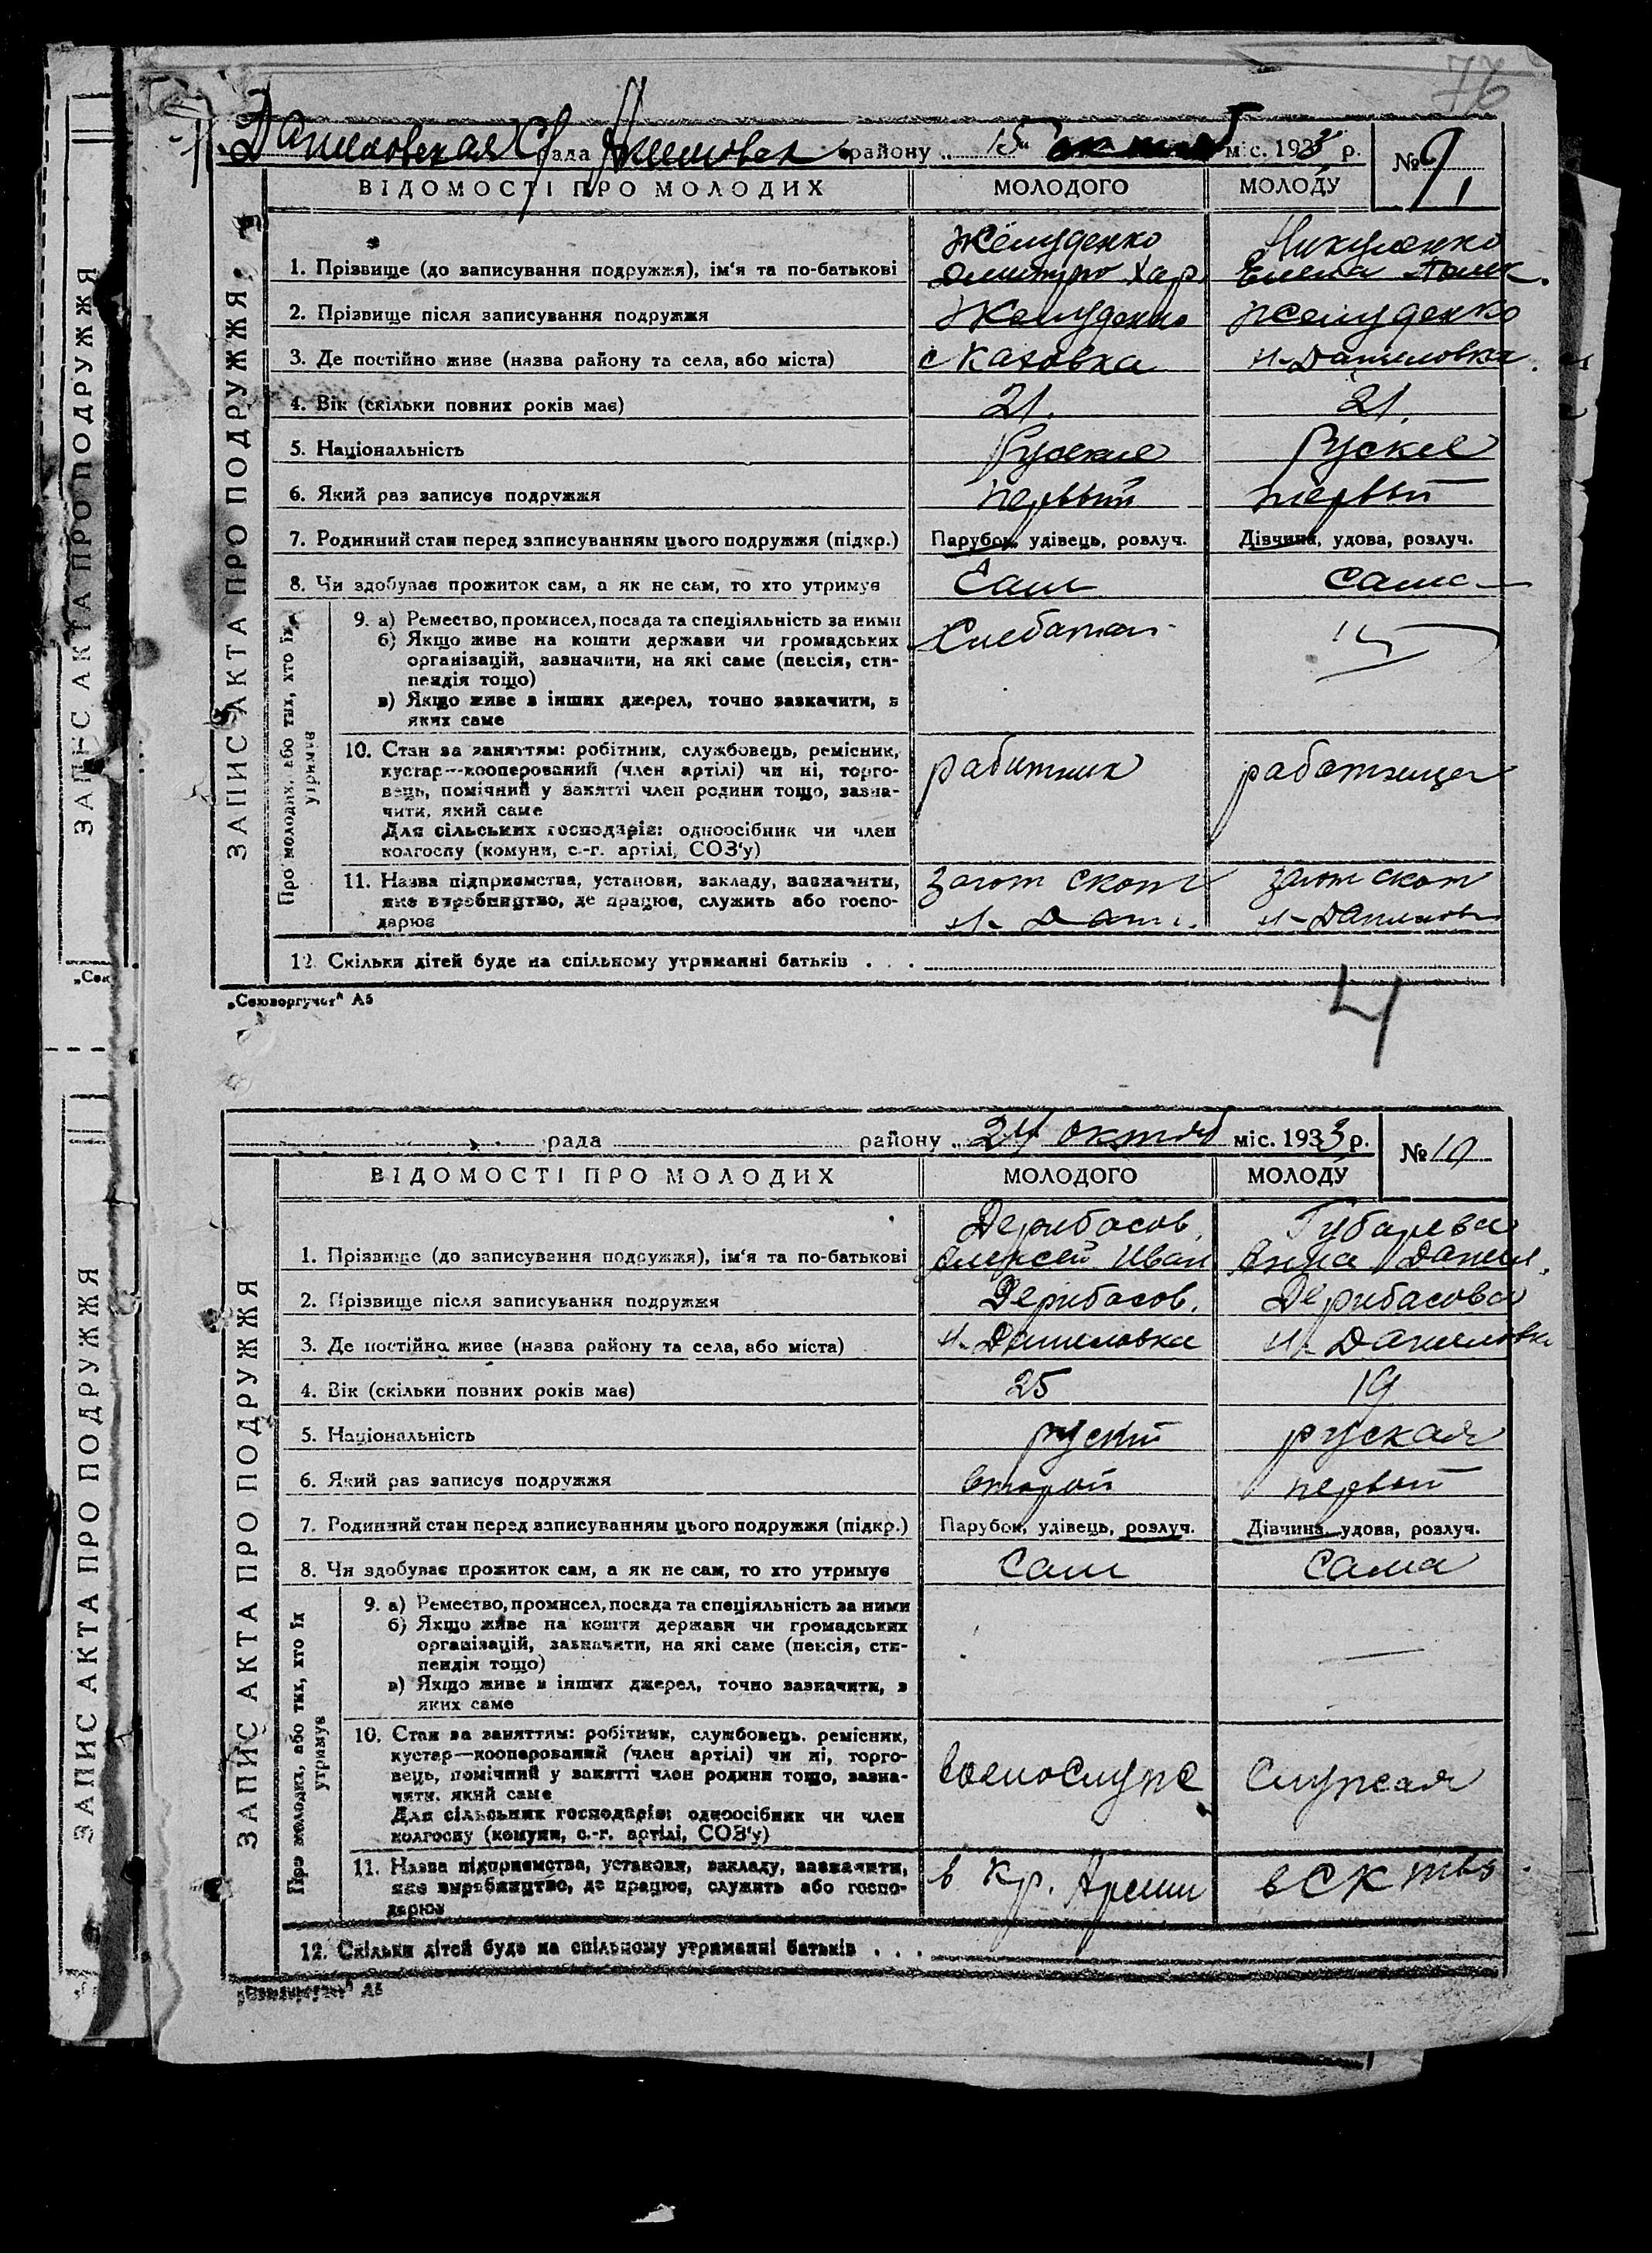 76
рада району 15 міс. 193 р. №
ВІДОМОСТІ ПРО МОЛОДИХ МОЛОДОГО МОЛОДУ
Желуденко Никуленко
1. Прізвище (до записування подружжя), ім'я та по-батькові Дмитро Хар. Елена
2. Прізвище після записування подружжя Желуденко Желуденко
3. Де постійно живе (назва району та села, або міста) с Каховка Н-Даниловка
4. Вік (скільки повних років має) 21. 21.
5. Національність Руские Руские
6. Який раз записує подружжя первый первый
7. Родинний стан перед записуванням цього подружжя (підкр.) Парубок, удівець, розлуч. Дівчина, удова, розлуч.
8. Чи здобуває прожиток сам, а як не сам, то хто утримує Сам Сама
9. а) Ремество, промисел, посада та спеціяльність за ними
б) Якщо живе на кошти держави чи громадських
організацій, зазначити, на які саме (пенсія, сти-
пендія тощо)
в) Якщо живе з інших джерел, точно зазначити, з
яких саме
10. Стан за заняттям: робітник, службовець, ремісник,
кустар—кооперований (член артілі) чи ні, торго-
вець, помічний у занятті член родини тощо, зазна- работник работница
чити, який саме
Для сільських господарів: одноосібник чи член
колгоспу (комуни, с.-г. артілі, СОЗ'у)
11. Назва підприємства, установи, закладу, зазначити, Загот скот Загот скот
яке виробництво, де працює, служить або госпо-
дарює Н-Дан. Н-Данилов
12. Скільки дітей буде на спільному утриманні батьків . . .
„Союзоргучет" А5
4
ЗАПИС АКТА ПРО ПОДРУЖЖЯ
Про молодих, або тих, хто їх
утримує
рада району 24 октяб міс. 1933 р. № 10
ВІДОМОСТІ ПРО МОЛОДИХ МОЛОДОГО МОЛОДУ
Дерибасов Губарева
1. Прізвище (до записування подружжя), ім'я та по-батькові Алексей Иван Анна Данил.
2. Прізвище після записування подружжя Дерибасов. Дерибасова
3. Де постійно живе (назва району та села, або міста) Н-Даниловка Н-Даниловка
4. Вік (скільки повних років має) 25 19
5. Національність руский руская
6. Який раз записує подружжя второй первый
7. Родинний стан перед записуванням цього подружжя (підкр.) Парубок, удівець, розлуч. Дівчина, удова, розлуч.
8. Чи здобуває прожиток сам, а як не сам, то хто утримує Сам Сама
9. а) Ремество, промисел, посада та спеціяльність за ними
б) Якщо живе на кошти держави чи громадських
організацій, зазначити, на які саме (пенсія, сти-
пендія тощо)
в) Якщо живе з інших джерел, точно зазначити, з
яких саме
10. Стан за заняттям: робітник, службовець, ремісник,
кустар—кооперований (член артілі) чи ні, торго-
вець, помічний у занятті член родини тощо, зазна- военослуж служая
чити, який саме
Для сільських господарів: одноосібник чи член
колгоспу (комуни, с.-г. артілі, СОЗ'у)
11. Назва підприємства, установи, закладу, зазначити,
яке виробництво, де працює, служить або госпо- в Кр. Армии в СК
дарює
12. Скільки дітей буде на спільному утриманні батьків . . .
„Союзоргучет" А5
ЗАПИС АКТА ПРО ПОДРУЖЖЯ
Про молодих, або тих, хто їх
утримує
ЗАПИС АКТА ПРО ПОДРУЖЖЯ
„Сою
ЗАПИС АКТА ПРО ПОДРУЖЖЯ